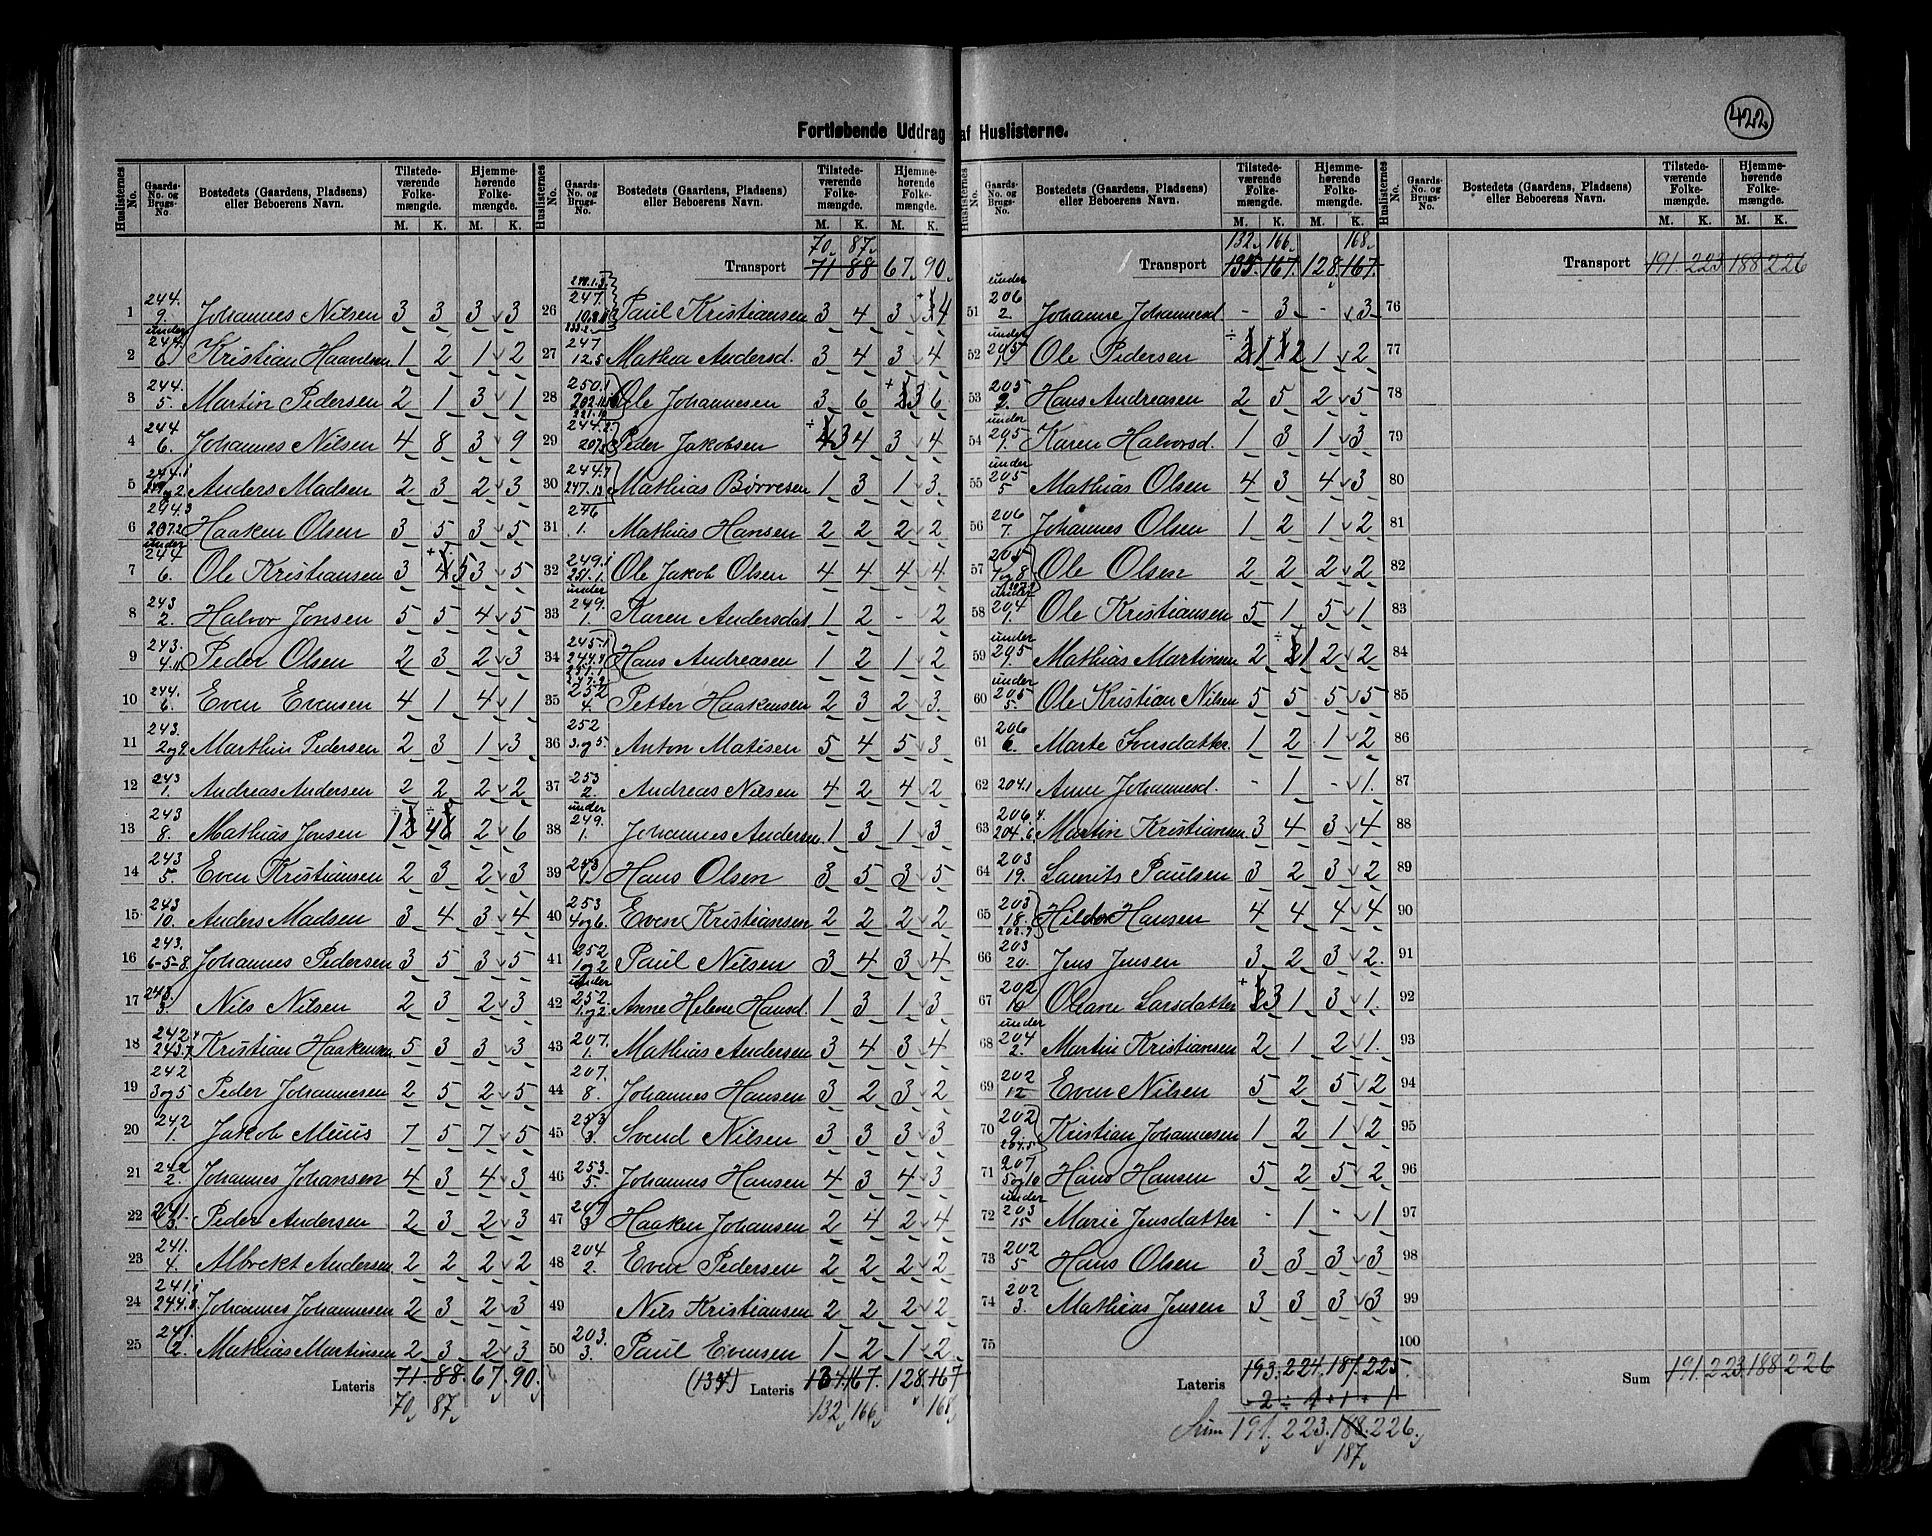 422
Fortløbende Uddrag af Huslisterne.
Huslisternes No. Gaards-No. og Brugs-No. Bostedets (Gaardens, Pladsens) eller Beboerens Navn. Tilstede-værende Folke-mængde. M. K. Hjemme-hørende Folke-mængde. M. K.
1 244. 9. Johannes Nilsen 3 3 3 3
2 under 244. 6 Kristian Haavelsen 1 2 1 2
3 244. 5. Martin Pedersen 2 1 3 1
4 244 6. Johannes Nilsen 4 8 3 9
5 244.1 Anders Madsen 2 3 2 3
6 207.2 Haaken Olsen 3 5 3 5
7 under 244 6. Ole Kristiansen 3 4 5 3 5
8 243 2. Halvor Jonsen 5 5 4 5
9 243. 4. Peder Olsen 2 3 2 3
10 244. 6. Even Evensen 4 1 4 1
11 243. 2og9 Marthin Pedersen 2 3 1 3
12 243 1. Andreas Andersen 2 2 2 2
13 243 8. Mathias Jonsen 1 4 2 6
14 243 5. Even Kristiansen 2 3 2 3
15 243 10. Anders Madsen 3 4 3 4
16 243. 6-5-8. Johannes Pedersen 3 5 3 5
17 243. 3. Nils Nilsen 2 3 2 3
18 242 243.7 Kristian Haakensen 5 3 3 3
19 242 3og5 Peder Johannesen 2 5 2 5
20 242 1. Jakob Muus 7 5 7 5
21 242 2. Johannes Johansen 4 3 4 3
22 241. 3. Peder Andersen 2 3 2 3
23 241. 4. Albrekt Andersen 2 2 2 2
24 241.1 244.8. Johannes Johannesen 2 3 2 3
25 241. 2. Mathias Martinsen 2 3 2 3
Lateris 71. 88. 67. 90.
70, 87,
Huslisternes No. Gaards-No. og Brugs-No. Bostedets (Gaardens, Pladsens) eller Beboerens Navn. Tilstede-værende Folke-mængde. M. K. Hjemme-hørende Folke-mængde. M. K.
70, 87,
Transport 71 88 67. 90.
26 247. Paul Kristiansen 3 4 3 4
27 247 12.5 Mathea Andersd. 3 4 3 4
28 250.1 221.10 Ole Johannesen 3 6 3 6
29 244.2 207. Peder Jakobsen 4 3 4 3 4
30 244.7 247.13 Mathias Børresen 1 3 1 3
31 246 1. Mathias Hansen 2 2 2 2
32 249.1 251.1. Ole Jakob Olsen 4 4 4 4
33 under 249. 1. Karen Andersdat. 1 2 - 2
34 245.1 244. Hans Andreasen 1 2 1 2
35 252 4. Petter Haakensen 2 3 2 3
36 252 3.og5. Anton Matisen 5 4 5 3
37 253 2. Andreas Nilsen 4 2 4 2
38 under 249. 1. Johannes Andersen 1 3 1 3
39 253 1. Hans Olsen 3 5 3 5
40 253 4og6. Even Kristiansen 2 2 2 2
41 252 1og2 Paul Nilsen 3 4 3 4
42 under 252. 1.og2 Anne Helene Hansd. 1 3 1 3
43 207. 1. Mathias Andersen 3 4 3 4
44 207. 8. Johannes Hansen 3 2 3 2
45 253 3. Svend Nilsen 3 3 3 3
46 253. 5. Johannes Hansen 4 3 4 3
47 207 3 Haaken Johansen 2 4 2 4
48 204 2. Even Pedersen 2 2 2 2
49 Nils Kristiansen 2 2 2 2
50 203. 3. Paul Evensen 1 2 1 2
(134) Lateris 134. 167. 128. 167
132, 166, 168,
Huslisternes No. Gaards-No. og Brugs-No. Bostedets (Gaardens, Pladsens) eller Beboerens Navn. Tilstede-værende Folke-mængde. M. K. Hjemme-hørende Folke-mængde. M. K.
132, 166, 168,
Transport 135. 167. 128. 167.
51 under 206 2. Johanne Johannesd - 3 - 3
52 under 205 Ole Pedersen 2 1 2 1 2
53 205 2. Hans Andreasen 2 5 2 5
54 under 205 1. Karen Halvorsd. 1 3 1 3
55 under 205 5 Mathias Olsen 4 3 4 3
56 206 7. Johannes Olsen 1 2 1 2
57 205 Ole Olsen 2 2 2 2
58 under 204 1. Ole Kristiansen 5 1 5 1
59 under 205 1. Mathias Martinsen 2 2 1 2 2
60 under 205 5 Ole Kristian Nilsen 5 5 5 5
61 206 6. Marte Iversdatter 1 2 1 2
62 204.1 Anne Johannesd. - 1 - 1.
63 206.4. 204.6. Martin Kristiansen 3 4 3 4
64 203 19. Laurits Paulsen 3 2 3 2
65 203 18. 202.7 Hildor Hansen 4 4 4 4
66 203 20. Jens Jensen 3 2 3 2.
67 202 10 Oliane Larsdatter 3 1 3 1.
68 under 204 2. Martin Kristiansen 2 1 2 1.
69 202 12 Even Nilsen 5 2 5 2
70 202 9 204.5 Kristian Johannesen 1 2 1 2
71 207 5og10 Hans Hansen 5 2 5 2
72 under 203 15 Marie Jensdatter - 1 - 1
73 202 5 Hans Olsen 3 3 3 3
74 202 3. Mathias Jensen 3 3 3 3
75
Lateris 193. 224. 187. 225.
- 2 ÷ 1 + 1 + 1
Sum 191, 223. 188. 226,
187,
Huslisternes No. Gaards-No. og Brugs-No. Bostedets (Gaardens, Pladsens) eller Beboerens Navn. Tilstede-værende Folke-mængde. M. K. Hjemme-hørende Folke-mængde. M. K.
Transport 191. 223. 188 226
76
77
78
79
80
81
82
83
84
85
86
87
88
89
90
91
92
93
94
95
96
97
98
99
100
Sum 191. 223. 188 226